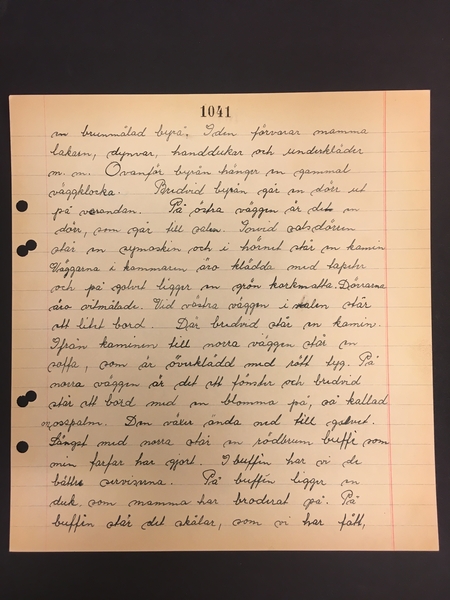 1041
en brunmålad byrå. I den förvarar mamma
lakan, dynvar, handdukar och underkläder
m. m. Ovanför byrån hänger en gammal
väggklocka. Bredvid byrån går en dörr ut
på verandan. På östra väggen är det en
dörr, som går till salen. Invid salsdörren
står en symaskin och i hörnet står en kamin
Väggarna i kammaren äro klädda med tapeter
och på golvet ligger en grön korkmatta. Dörrarna
äro vitmålade. Vid västra väggen i salen står
ett litet bord. Där bredvid står en kamin.
Ifrån kaminen till norra väggen står en
soffa, som är överklädd med rött tyg. På
norra väggen är det ett fönster och bredvid
står ett bord med en blomma på, så kallad
rosspalm. Den växer ända ned till golvet.
Längst med norra står en rödbrun buffé som
min farfar har gjort. I buffén har vi de
bättre serviserna. På buffén ligger en
duk som mamma har broderat på. På
buffén står det skålar, som vi har fått,